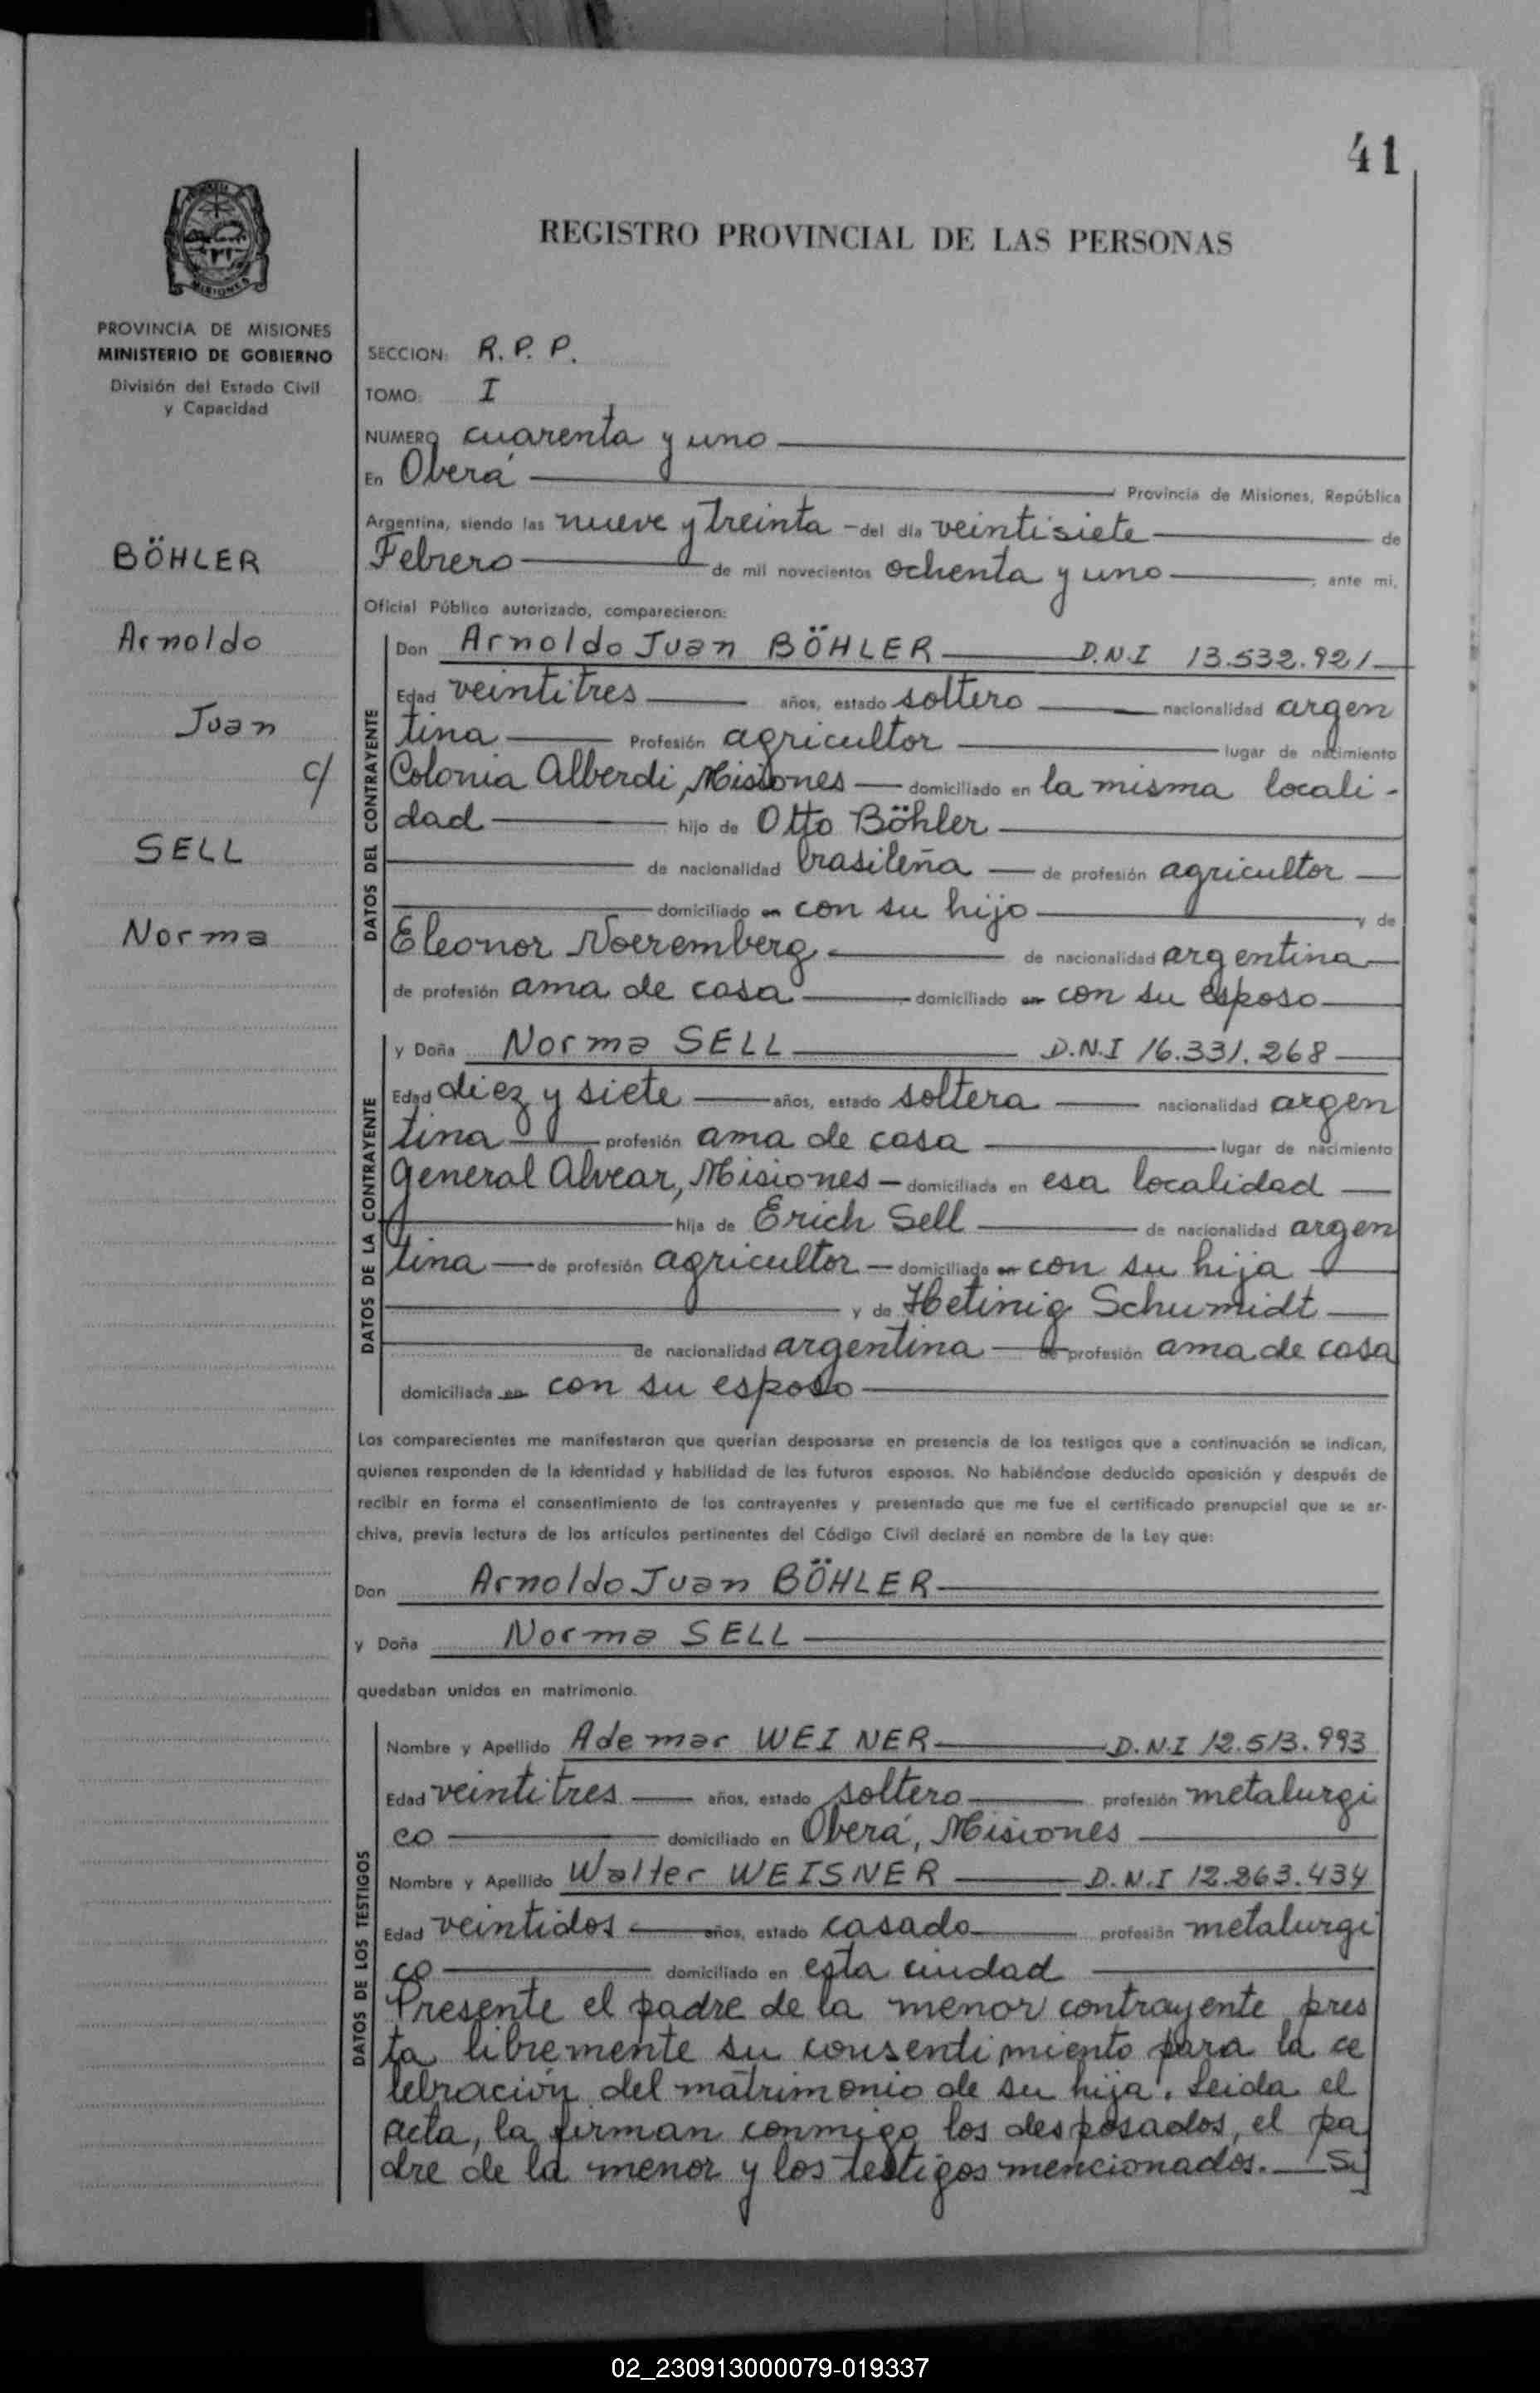 41
REGISTRO PROVINCIAL DE LAS PERSONAS
MISIONES
PROVINCIA DE MISIONES
MINISTERIO DE GOBIERNO
División del Estado Civil
y Capacidad
BÖHLER
Arnoldo
Juan
c/
SELL
Norma
SECCION: R. P. P.
TOMO: I
NUMERO cuarenta y uno
En Oberá Provincia de Misiones, República
Argentina, siendo las nueve y treinta - del día veintisiete de
Febrero de mil novecientos ochenta y uno ; ante mi,
Oficial Público autorizado, comparecieron:
DATOS DEL CONTRAYENTE
Don Arnoldo Juan BÖHLER D.N.I 13.532.921
Edad veintitres años, estado soltero nacionalidad argen
tina Profesión agricultor lugar de nacimiento
Colonia Alberdi, Misiones domiciliado en la misma locali-
dad hijo de Otto Böhler
de nacionalidad brasileña de profesión agricultor
domiciliado en con su hijo y de
Eleonor Noeremberg de nacionalidad argentina
de profesión ama de casa domiciliado en con su esposo
DATOS DE LA CONTRAYENTE
y Doña Norma SELL D.N.I 16.331.268
Edad diez y siete años, estado soltera nacionalidad argen
tina profesión ama de casa lugar de nacimiento
General Alvear, Misiones domiciliada en esa localidad
hija de Erich Sell de nacionalidad argen
tina de profesión agricultor domiciliada en con su hija
y de Hetinig Schumidt
de nacionalidad argentina de profesión ama de casa
domiciliada en con su esposo
Los comparecientes me manifestaron que querían desposarse en presencia de los testigos que a continuación se indican,
quienes responden de la identidad y habilidad de los futuros esposos. No habiéndose deducido oposición y después de
recibir en forma el consentimiento de los contrayentes y presentado que me fue el certificado prenupcial que se ar-
chiva, previa lectura de los artículos pertinentes del Código Civil declaré en nombre de la Ley que:
Don Arnoldo Juan BÖHLER
y Doña Norma SELL
quedaban unidos en matrimonio.
DATOS DE LOS TESTIGOS
Nombre y Apellido Ademar WEINER D.N.I 12.513.993
Edad veintitres años, estado soltero profesión metalurgi
co domiciliado en Oberá, Misiones
Nombre y Apellido Walter WEISNER D.N.I 12.263.434
Edad veintidos años, estado casado profesión metalurgi
co domiciliado en esta ciudad
Presente el padre de la menor contrayente pres
ta libremente su consentimiento para la ce
lebración del matrimonio de su hija. Leida el
acta, la firman conmigo los desposados, el pa
dre de la menor y los testigos mencionados.
02_230913000079-019337